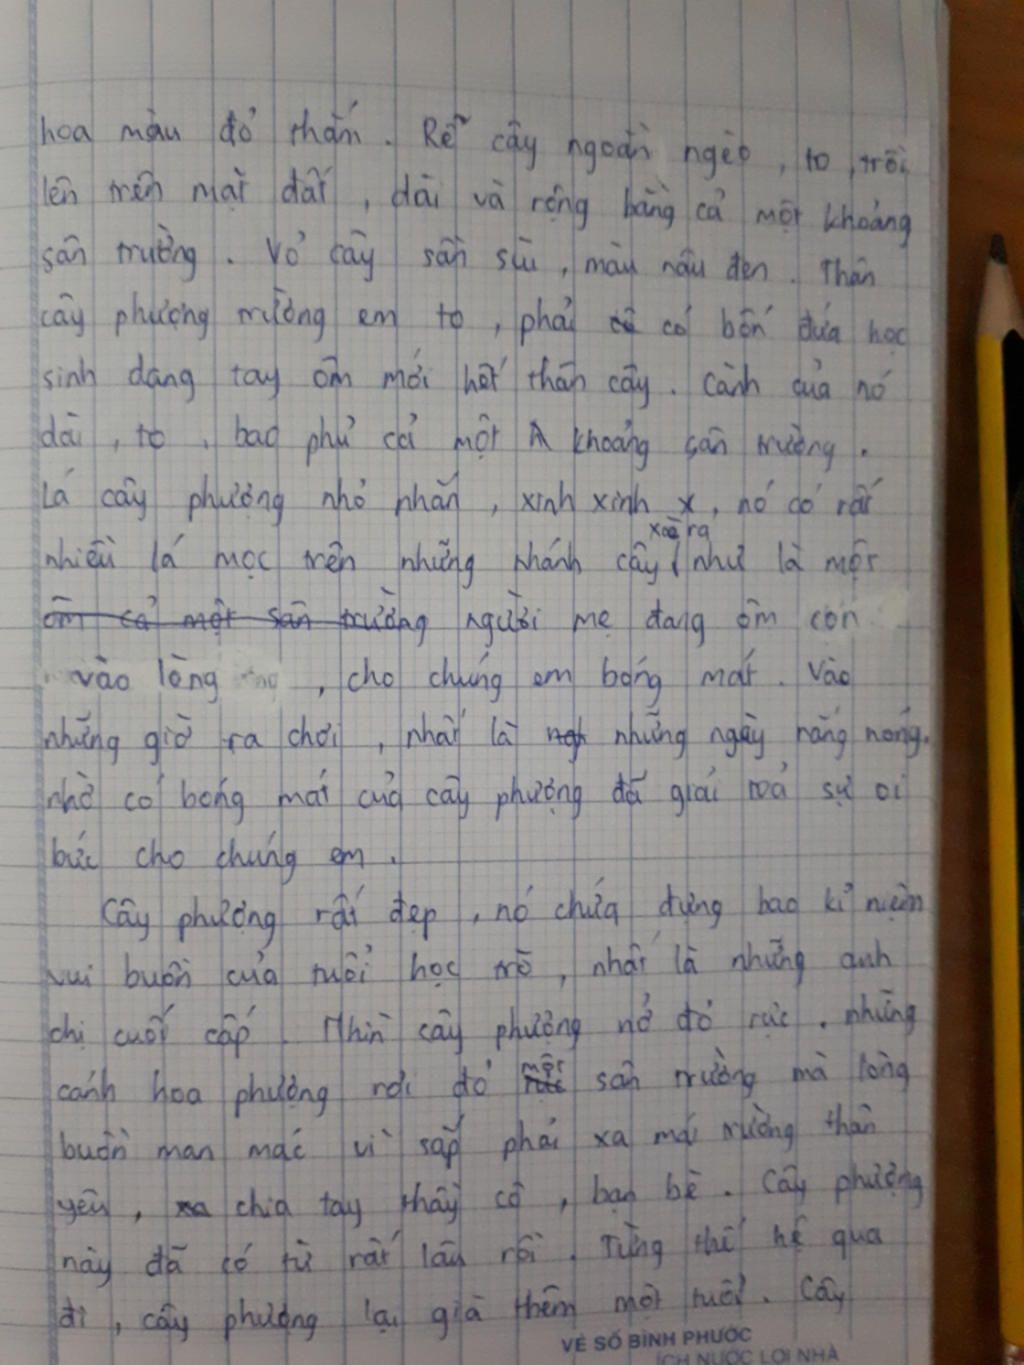 hoa màu đỏ thắm. Rễ cây ngoằn ngèo, to, trồi
lên trên mặt đất, dài và rộng bằng cả một khoảng
sân trường. Vỏ cây sần sùi, màu nâu đen. Thân
cây phượng trường em to, phải có bốn đứa học
sinh dang tay ôm mới hết thân cây. Cành của nó
dài, to, bao phủ cả một khoảng sân trường.
Lá cây phượng nhỏ nhắn, xinh xinh, nó có rất
xoè ra
nhiều lá mọc trên những nhánh cây như là một
ôm cả một sân trường người mẹ đang ôm con
vào lòng, cho chúng em bóng mát. Vào
những giờ ra chơi, nhất là những ngày nắng nóng,
nhờ có bóng mát của cây phượng đã giải toả sự oi
bức cho chúng em.
Cây phượng rất đẹp, nó chứa đựng bao kỉ niệm
vui buồn của tuổi học trò, nhất là những anh
chị cuối cấp. Nhìn cây phượng nở đỏ rực, những
cánh hoa phượng rơi đỏ một sân trường mà lòng
buồn man mác vì sắp phải xa mái trường thân
yêu, xa chia tay thầy cô, bạn bè. Cây phượng
này đã có từ rất lâu rồi. Từng thế hệ qua
đi, cây phượng lại già thêm một tuổi. Cây
VÉ SỐ BÌNH PHƯỚC
ÍCH NƯỚC LỢI NHÀ